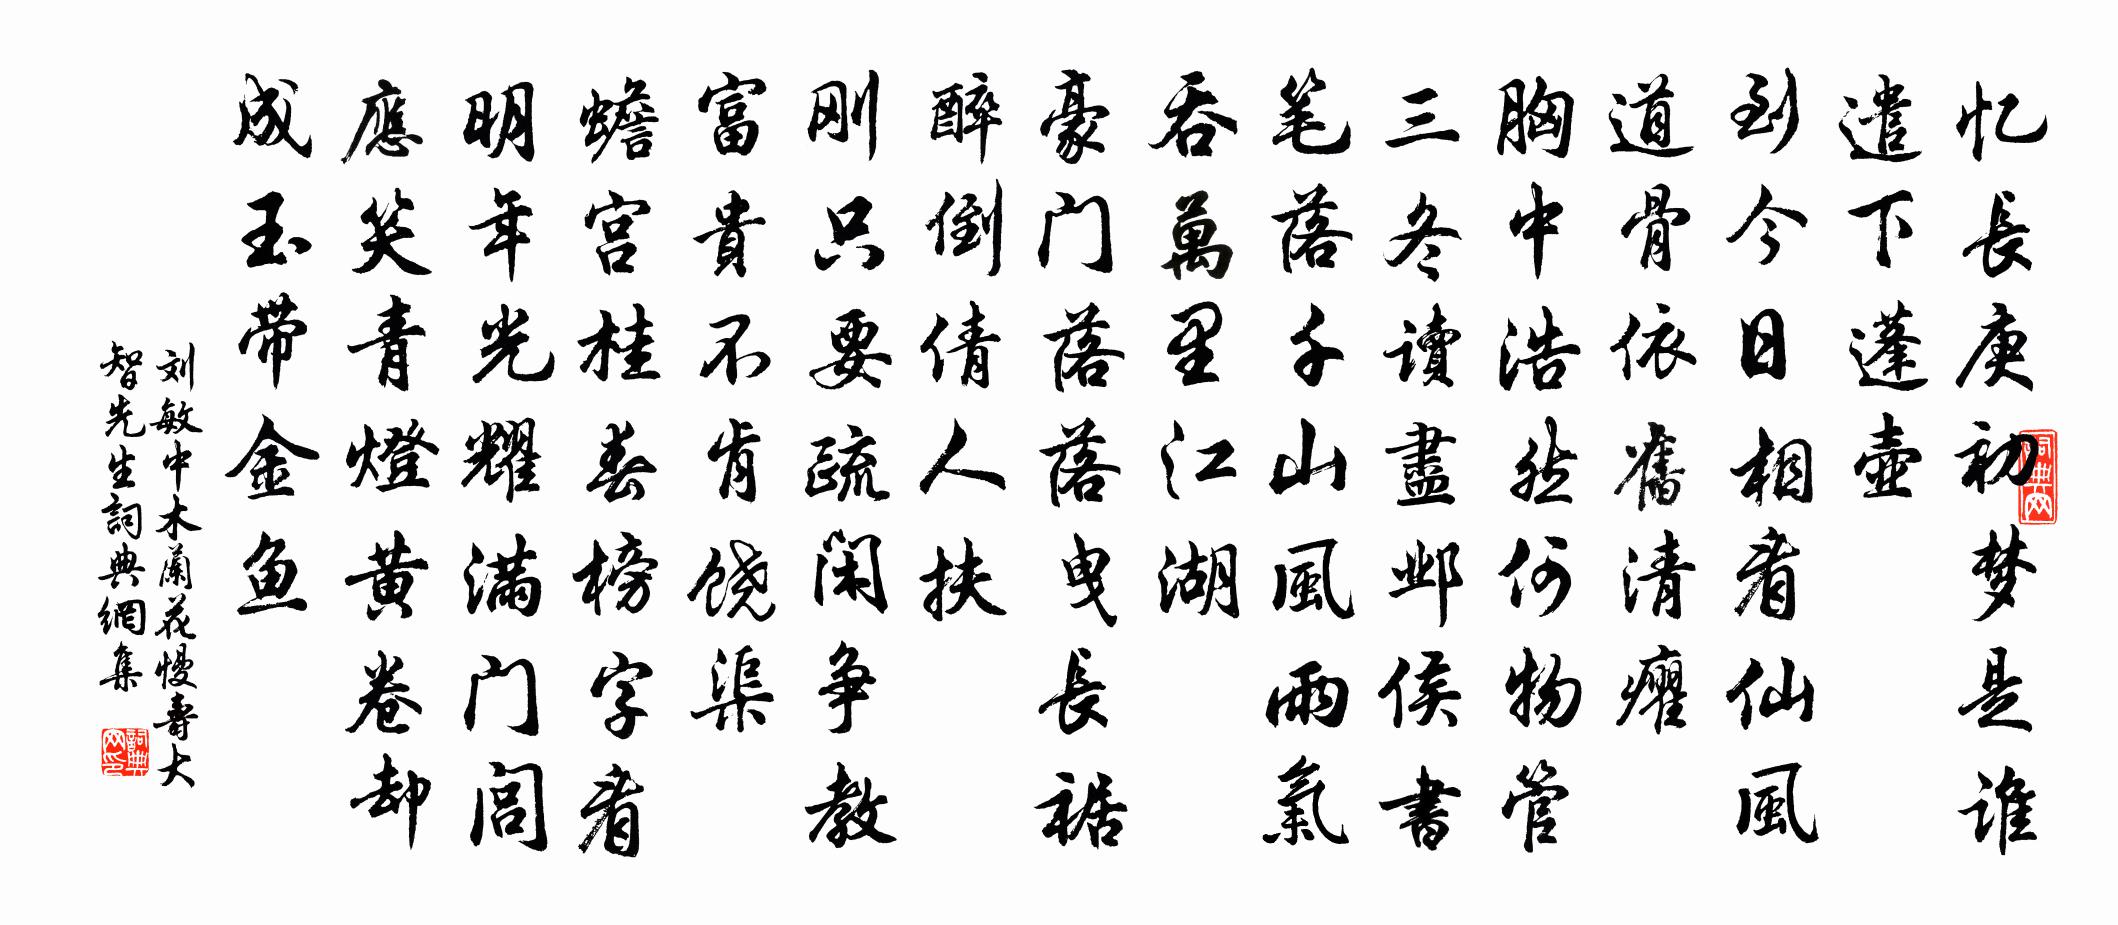 忆長庚初梦是谁
遣下蓬壷
到今日相看仙風
道骨依舊清癯
胸中浩然何物管
三冬讀盡邺侯書
笔落千山風雨氣
吞萬里江湖
豪门落落曳長裾
醉倒倩人扶
刚只要疏闲争教
富貴不肯饶渠
蟾宫桂春榜字看
明年光耀满门闾
應笑青燈黄卷却
成玉带金魚
刘敏中木蘭花慢壽大
智先生詞典網集
詞典网
詞典网印